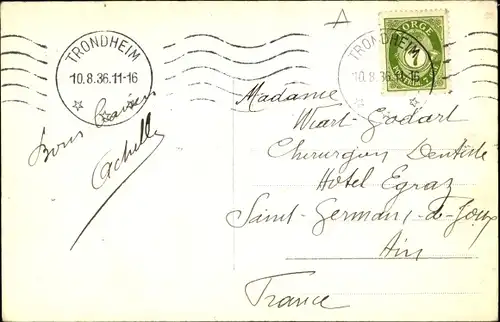 TRONDHEIM
10.8.36.11-16
TRONDHEIM
10.8.36.11-16
NORGE
7
Bons Baisers
Achille
Madame
Wiart-Godart
Chirurgien Dentiste
Hôtel Egraz
Saint-Germain-de-Joux
Ain
France